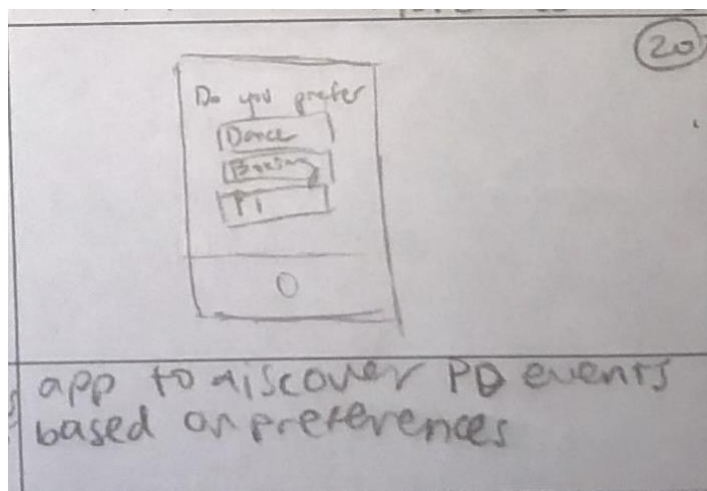 20
Do you prefer
Dance
Boxing
app to discover PD events
based on preferences